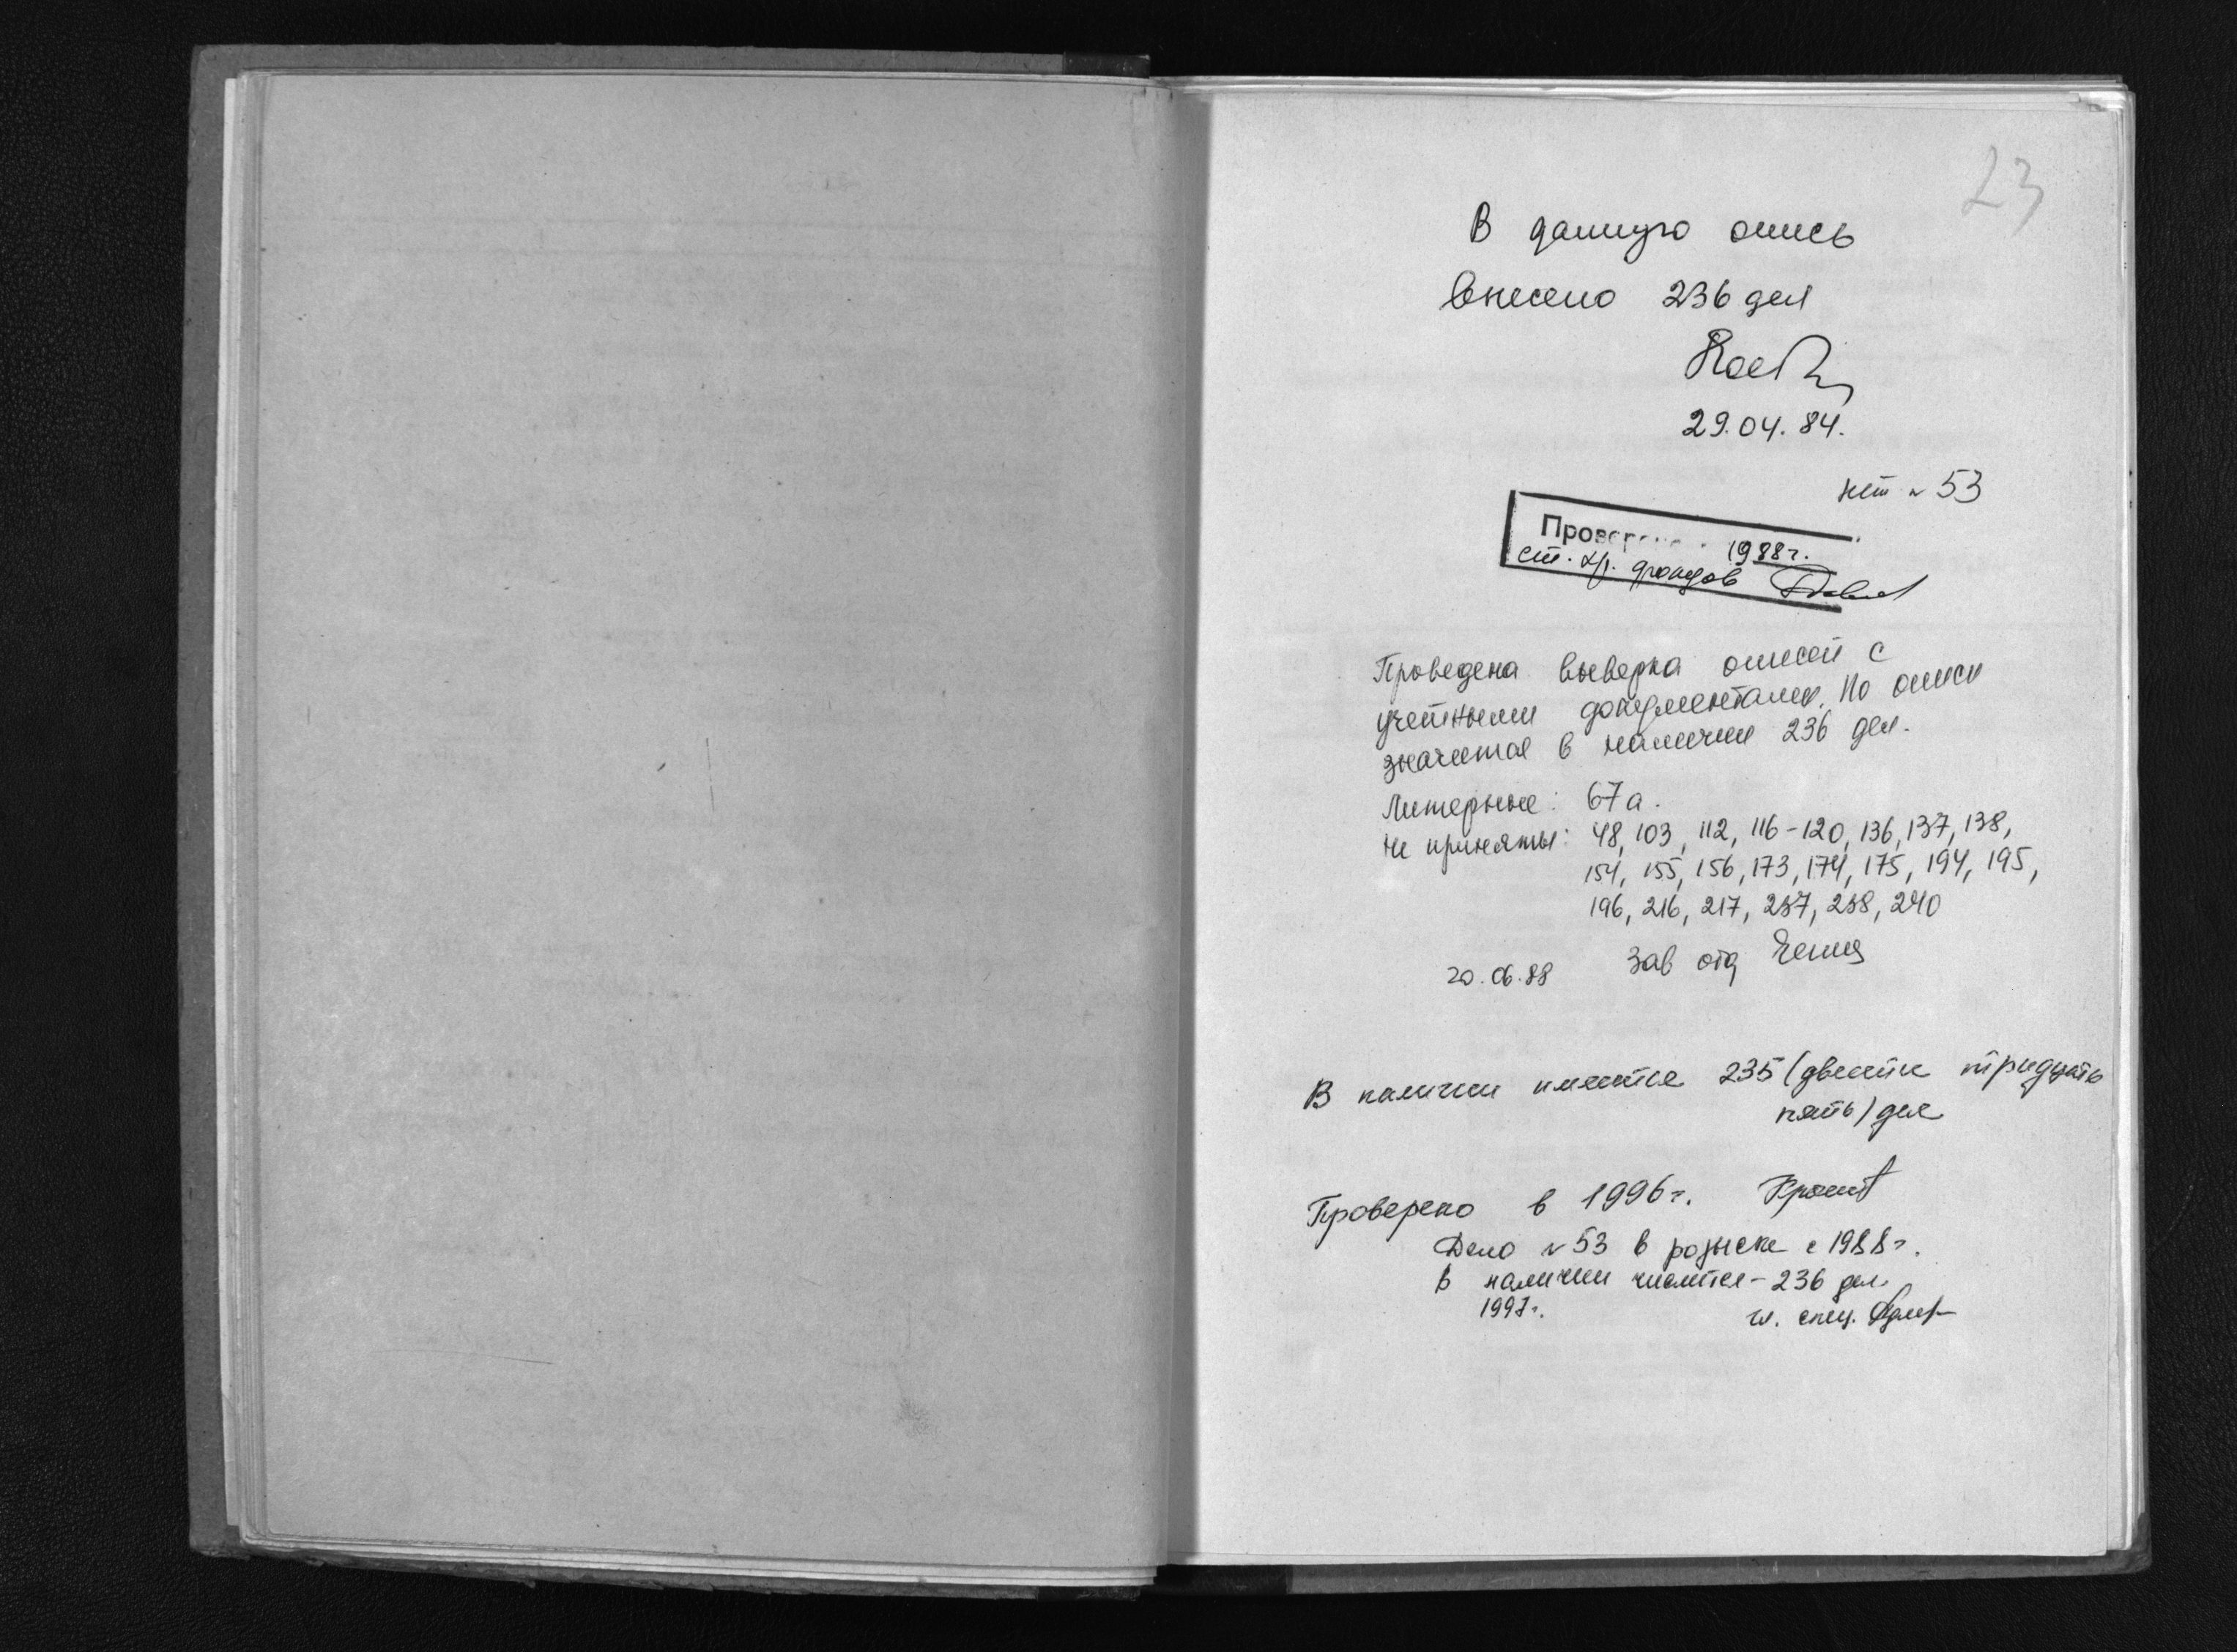 23
В данную опись
внесено 236 дел
29.04.84.
нет № 53
Проверено 1988г.
ст. хр. фондов
Проведена выверка описей с
учетными документами. По описи
значится в наличии 236 дел.
Литерные: 67а.
Не приняты: 48, 103, 112, 116-120, 136, 137, 138,
154, 155, 156, 173, 174, 175, 194, 195,
196, 216, 217, 237, 238, 240
20.06.88 Зав отд
В наличии имеется 235 (двести тридцать
пять) дел
Проверено в 1996г.
Дело № 53 в розыске с 1988г.
В наличии числится - 236 дел.
1997г. гл. спец.